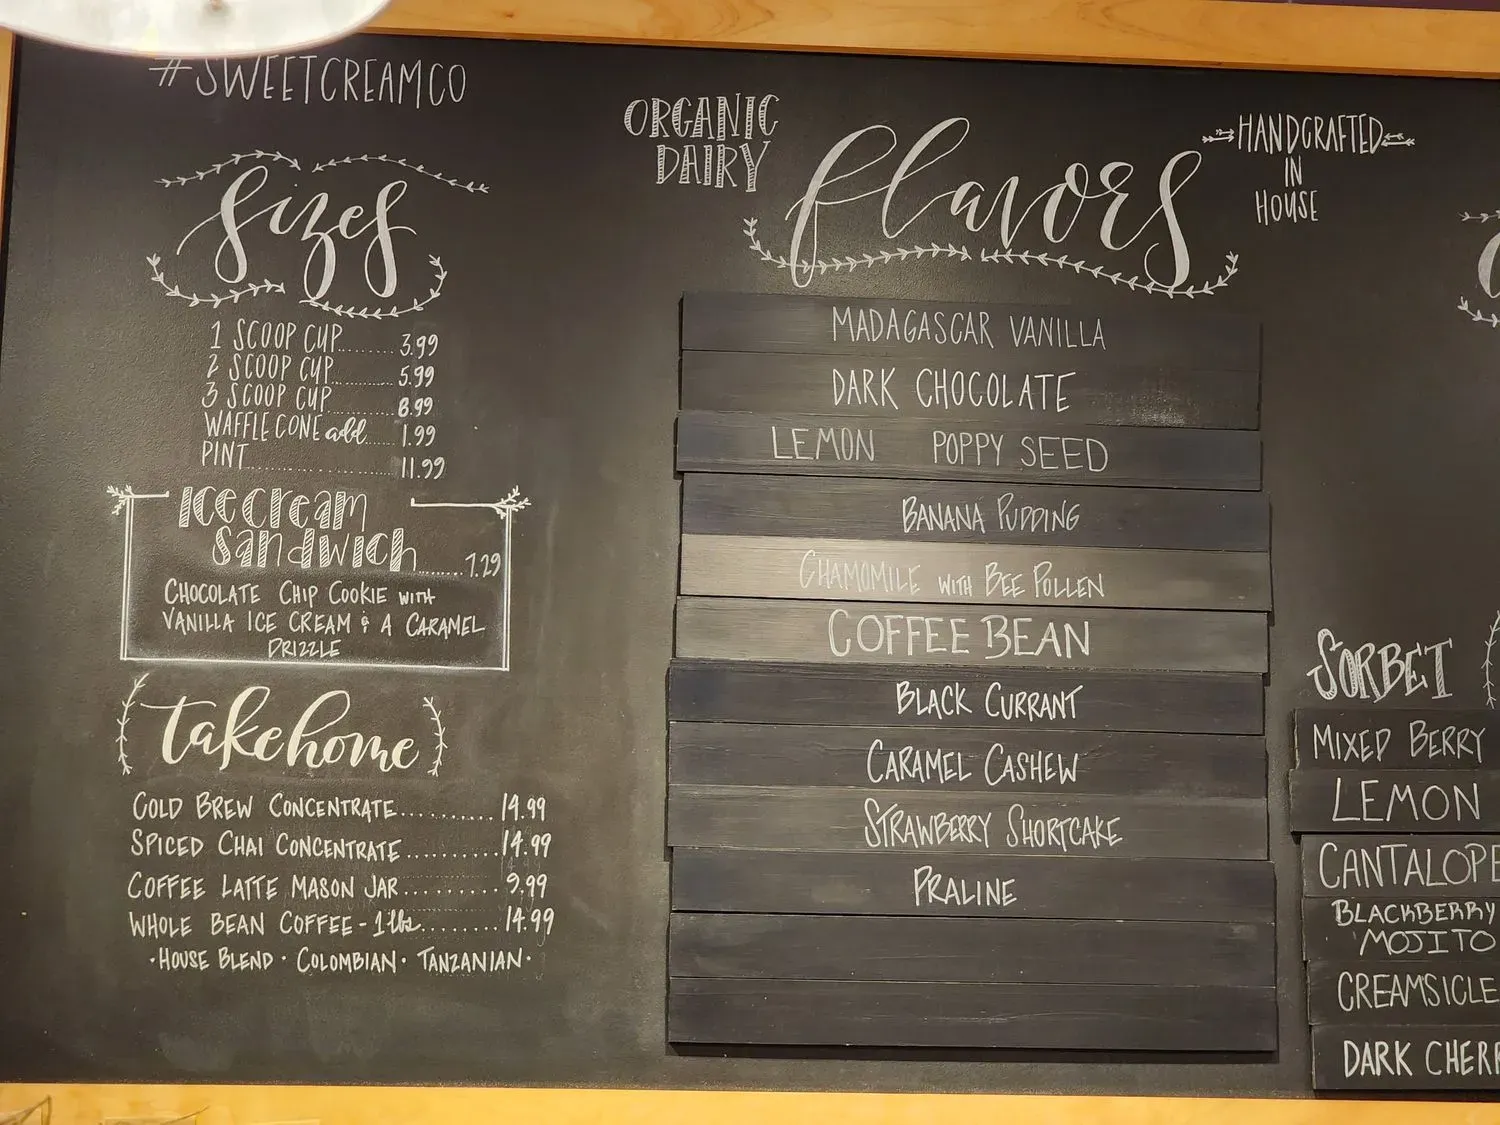 #SWEETCREAMCO
sizes
1 SCOOP CUP........3.99
2 SCOOP CUP..........5.99
3 SCOOP CUP..........8.99
WAFFLE CONE add.....1.99
PINT......................11.99
Icecream
Sandwich........7.29
CHOCOLATE CHIP COOKIE WITH
VANILLA ICE CREAM & A CARAMEL
DRIZZLE
takehome
COLD BREW CONCENTRATE...........14.99
SPICED CHAI CONCENTRATE..........14.99
COFFEE LATTE MASON JAR..........9.99
WHOLE BEAN COFFEE - 1 lbs........14.99
• HOUSE BLEND • COLOMBIAN • TANZANIAN •
ORGANIC
DAIRY
flavors
HANDCRAFTED
IN
HOUSE
MADAGASCAR VANILLA
DARK CHOCOLATE
LEMON POPPY SEED
BANANA PUDDING
CHAMOMILE WITH BEE POLLEN
COFFEE BEAN
BLACK CURRANT
CARAMEL CASHEW
STRAWBERRY SHORTCAKE
PRALINE
SORBET
MIXED BERRY
LEMON
CANTALOPE
BLACKBERRY
MOJITO
CREAMSICLE
DARK CHERR